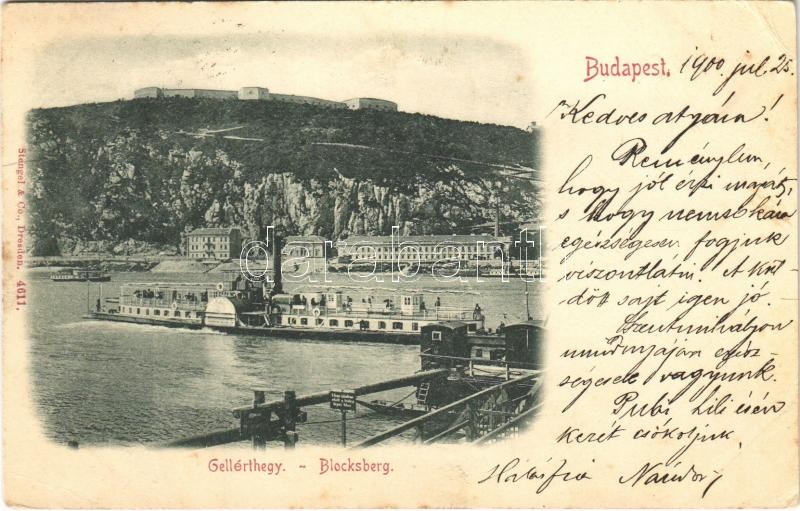 Budapest, 1900 jul. 25.
Kedves atyám!
Reményleni,
hogy jól érzi magát,
s hogy nemsokára
egészségesen fogjuk
viszontlátni. A kül-
dött sajt igen jó.
Szentmihályon
mindnyájan egész-
ségesek vagyunk.
Pubi Lili
kezét csókoljuk.
Hálásfia Nándor
Stengel & Co., Dresden. 4611.
darabanth
Gellérthegy. - Blocksberg.